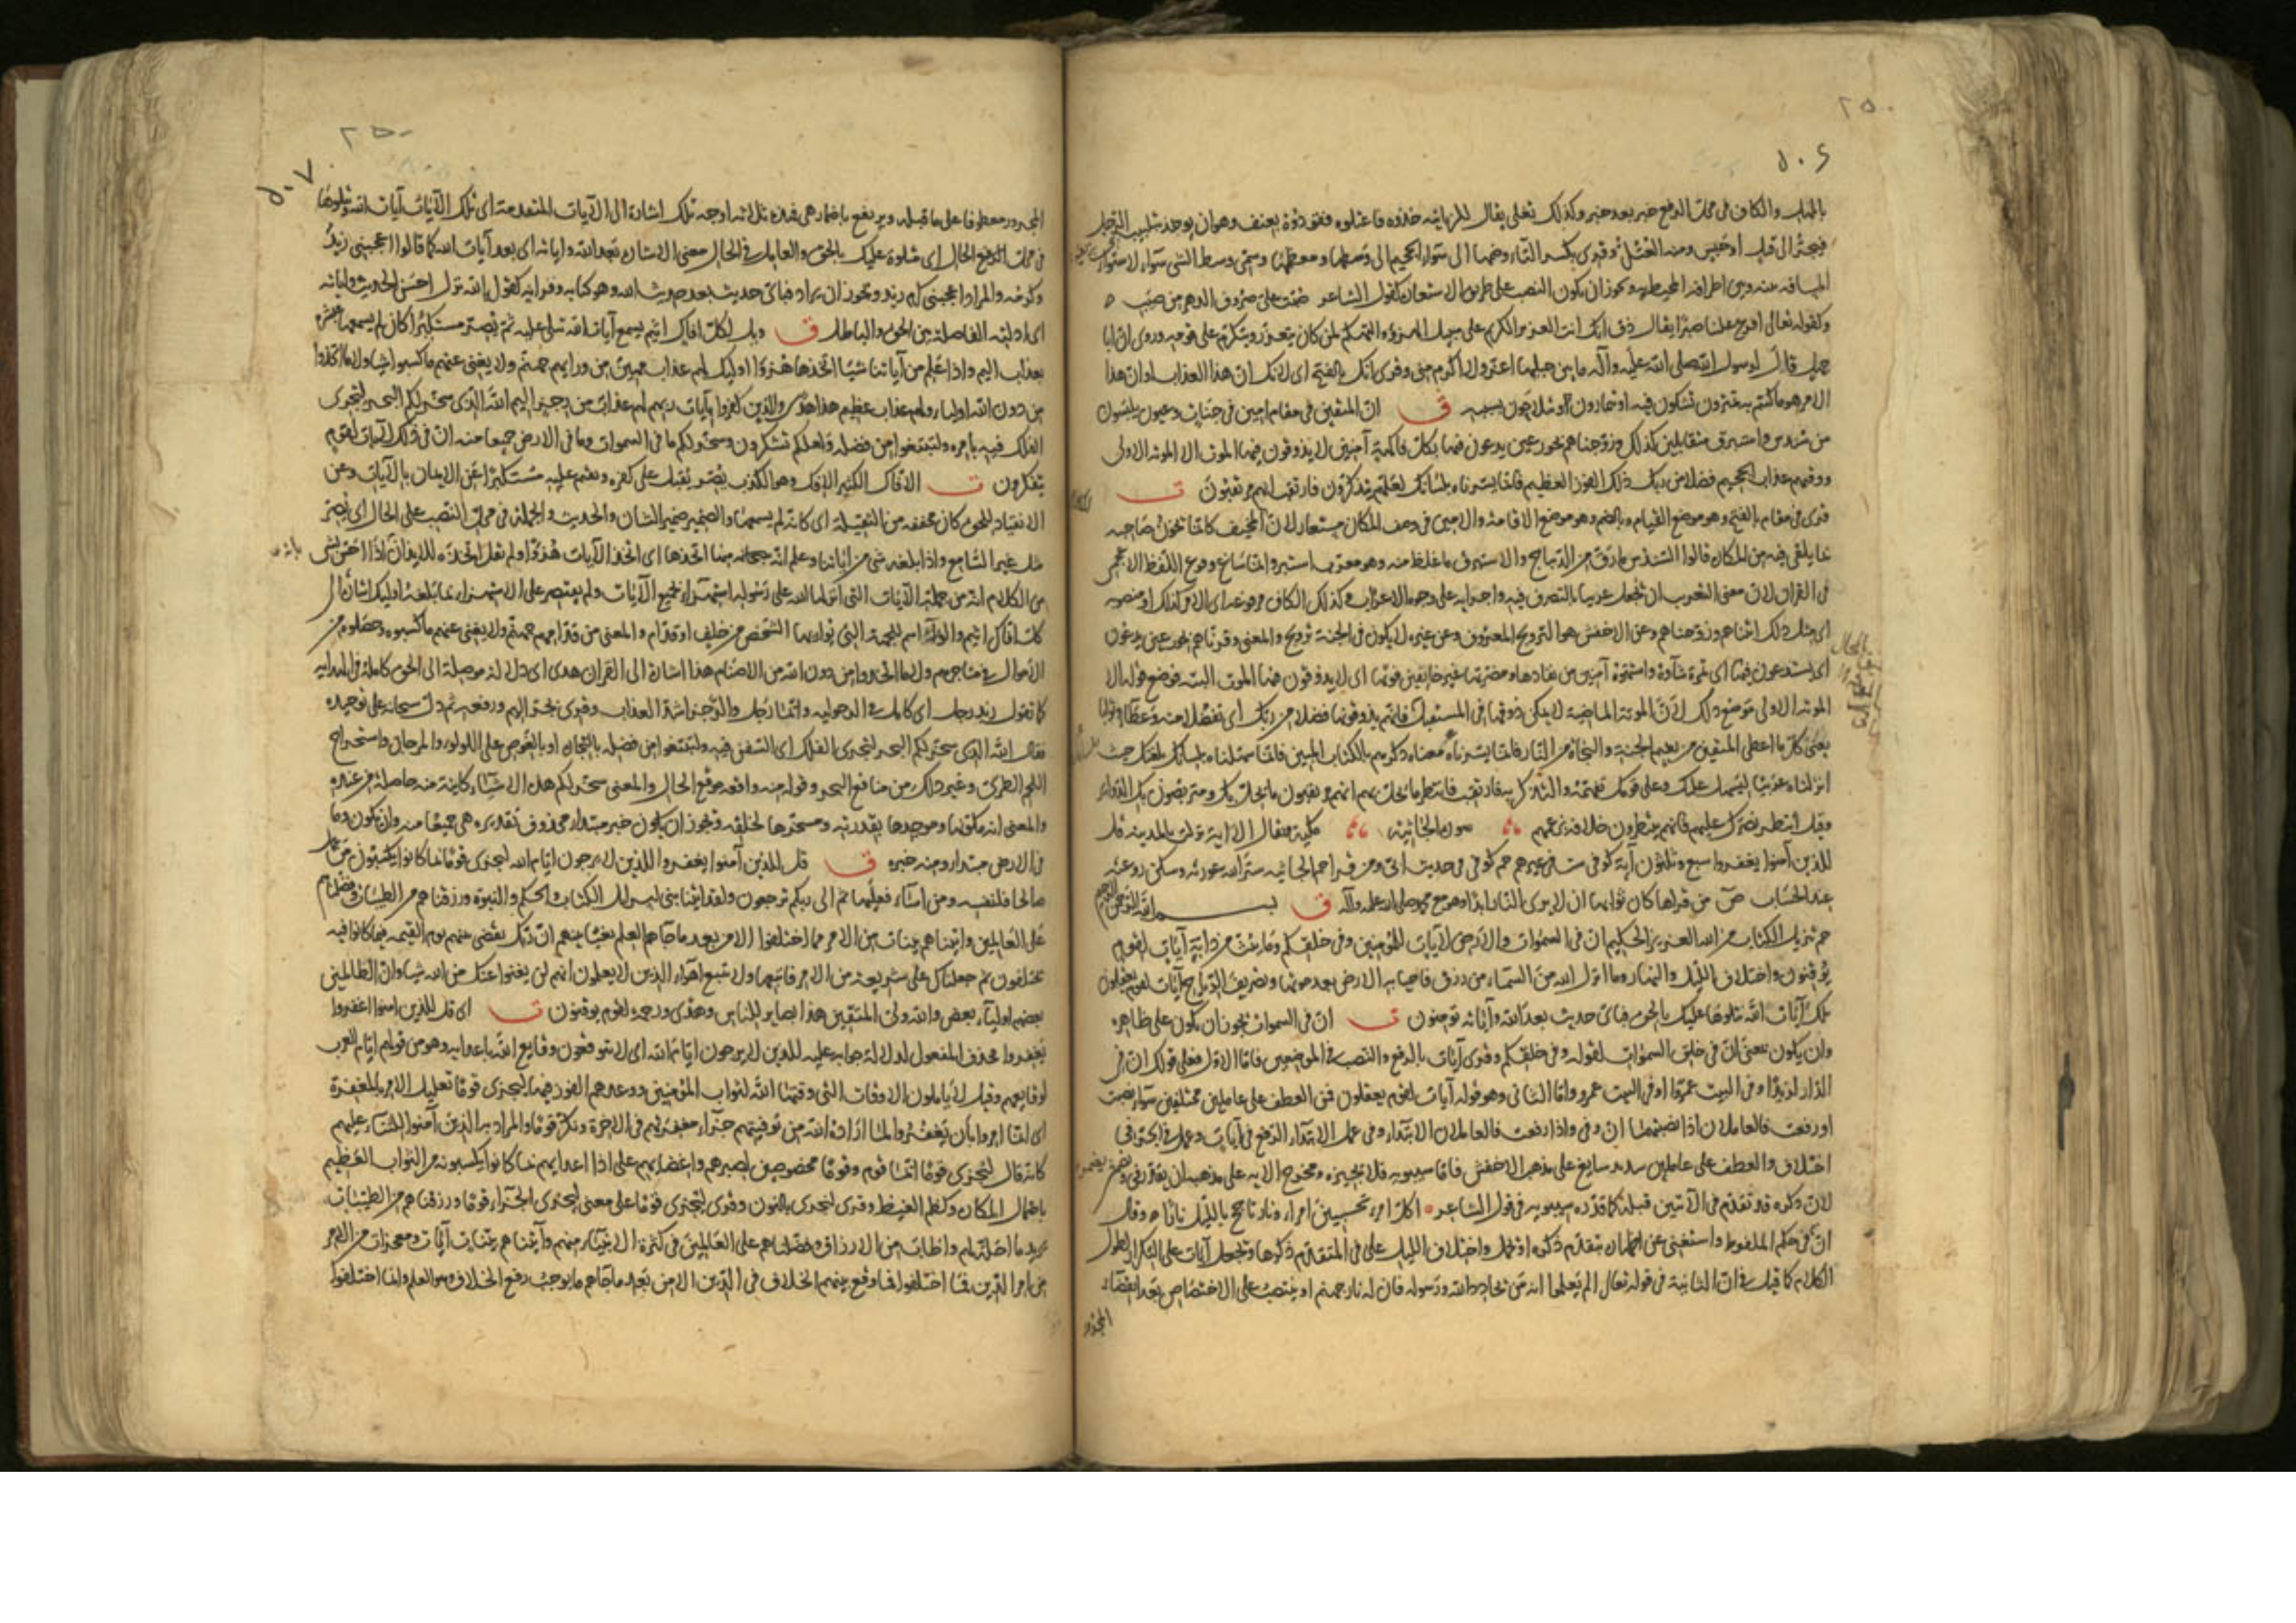 ٢٥٠
٥٠٦
بالمهل والكاف فى محل الرفع خبر بعد خبر وكذلك تغلى يقال للزبانية خذوه فاعتلوه فقودوه بعنف وهو ان يوخذ بتلبيب الرجل
فيجر الى قتل او حبس ومنه العتل وقرى بكسر التاء وضمها الى سواء الجحيم الى وسطها ومعظمها وسمى وسط الشى سواء لاستواء
المسافة بينه وبين اطرافه المحيطة به ويجوز ان يكون النصب على طريق الاستعارة كقول الشاعر صبت على صروف الدهر من صبب
وكقوله تعالى افرغ علينا صبرا يقال ذق انك انت العزيز الكريم على سبيل الهزؤ والتهكم لمن كان يتعزز ويتكرم على قومه وروى ان ابا
جهل قال لرسول الله صلى الله عليه وآله ما بين جبليها اعز ولا اكرم منى وقرى انك بالفتح اى لانك ان هذا العذاب او ان هذا
الامر هو ما كنتم به تمترون تشكون فيه او تتمارون وتتلاجون بسببه ق ان المتقين فى مقام امين فى جنات وعيون يلبسون
من سندس واستبرق متقابلين كذلك وزوجناهم بحور عين يدعون فيها بكل فاكهة آمنين لا يذوقون فيها الموت الا الموتة الاولى
ووقيهم عذاب الجحيم فضلا من ربك ذلك الفوز العظيم فانما يسرناه بلسانك لعلهم يتذكرون فارتقب انهم مرتقبون ت
قرى فى مقام بالفتح وهو موضع القيام وبالضم وهو موضع الاقامة والامين فى وصف المكان مستعار لان المخيف كانما يخون صاحبه
بما يلقى فيه من المكاره قالوا السندس ما رق من الديباج والاستبرق ما غلظ منه وهو معرب استبر وانما ساغ وقوع اللفظ الاعجمى
فى القرآن لان معنى التعريب ان تجعل عربيا بالتصرف فيه واجرائه على وجوه الاعراب كذلك الكاف مرفوعة اى الامر كذلك او منصوبة
اى مثل ذلك اثبناهم وزوجناهم وعن الاخفش هو التزويج المعروف وعن غيره لا يكون فى الجنة تزويج والمعنى وقرناهم بحور عين يدعون
اى يستدعون فيها اى ثمرة شاؤه واشتهوه آمنين من نفادها ومضرتها غير خائفين فوتها اى لا يذوقون فيها الموت البتة فوضع قوله الا
الموتة الاولى موضع ذلك لان الموتة الماضية لا يمكن ذوقها فى المستقبل فانهم يذوقونها فضلا من ربك اى تفضلا منه وعطاء وثوابا
يعنى كل ما اعطى المتقين من نعيم الجنة والنجاة من النار فانما يسرناه معناه ذكرهم بالكتاب المبين فانما سهلناه بلسانك بلغتك حيث
انزلناه عربيا ليسهل عليك وعلى قومك تفهمه والتذكر به فارتقب فانتظر ما يحل بهم انهم مرتقبون ما يحل بك ومتربصون بك الدوائر
وقيل انتظر نصرك عليهم فانهم ينتظرون خلافه بزعمهم سورة الجاثية مكية ويقال الا آية نزلت بالمدينة قل
للذين آمنوا يغفروا سبع وثلثون آية كوفى ست فى غيرهم حم كوفى فى حديث ابى ومن قرأ حم الجاثية ستر الله عورته وسكن روعته
عند الحساب ص من قراها كان ثوابها ان لا يرى النار ابدا وهو مع محمد صلى الله عليه وآله ق بسم الله الرحمن الرحيم
حم تنزيل الكتاب من الله العزيز الحكيم ان فى السموات والارض لآيات للمؤمنين وفى خلقكم وما يبث من دابة آيات لقوم
يوقنون واختلاف الليل والنهار وما انزل الله من السماء من رزق فاحيا به الارض بعد موتها وتصريف الرياح آيات لقوم يعقلون
تلك آيات الله نتلوها عليك بالحق فباى حديث بعد الله وآياته تؤمنون ت ان فى السموات يجوز ان يكون على ظاهره
وان يكون بمعنى ان فى خلق السموات لقوله وفى خلقكم وقرى آيات بالرفع والنصب فى الموضعين فاما الاول فعلى قولك ان فى
الدار لزيدا وفى البيت عمرًا او فى البيت عمرو واما الثانى وهو قوله آيات لقوم يعقلون فمن العطف على عاملين مختلفين سواء نصبت
او رفعت فالعاملان اذا نصبتهما ان وفى واذا رفعت فالعاملان الابتداء وفى عمل الابتداء الرفع فى آيات وعمل فى الجر فى
اختلاف والعطف على عاملين سديد سايغ على مذهب الاخفش فاما سيبويه فلا يجيزه ومخرج الآية على مذهبه ان يقدر فى ويضمر
لان ذكره قد تقدم فى الآيتين قبله كما قدره سيبويه فى قول الشاعر اكل امرئ تحسبين امراء ونار تاجج بالليل نارا وقيل
ان فى حكم الملفوظ واستغنى عن اظهاره بتقدم ذكره او حمل واختلاف الليل على فى المتقدم ذكرها وتجعل آيات على التكرار لطول
الكلام كما قيل فى ان الثانية فى قوله تعالى الم يعلموا انه من يحادد الله ورسوله فان له نار جهنم او ينتصب على الاختصاص بعد انقضاء
المجرور
٢٥٠
٥٠٧
المجرور معطوفا على ما قبله ويرتفع باضمار هى فهذه ثلاثة اوجه تلك اشارة الى الآيات المتقدمة اى تلك الآيات آيات الله ونتلوها
فى محل الحال اى متلوة عليك بالحق والعامل فى الحال معنى الاشارة بعد الله وآياته اى بعد آيات الله كما قالوا اعجبنى زيد
وكرمه والمراد اعجبنى كرم زيد ويجوز ان يراد فباى حديث بعد حديث الله وهو كتابه وقرانه كقوله الله نزل احسن الحديث وآياته
اى ادلته الفاصلة بين الحق والباطل ق ويل لكل افاك اثيم يسمع آيات الله تتلى عليه ثم يصر مستكبرا كان لم يسمعها فبشره
بعذاب اليم واذا علم من آياتنا شيئا اتخذها هزوا اوليك لهم عذاب مهين من ورائهم جهنم ولا يغنى عنهم ما كسبوا شيئا ولا ما اتخذوا
من دون الله اولياء ولهم عذاب عظيم هذا هدى والذين كفروا بآيات ربهم لهم عذاب من رجز اليم الله الذى سخر لكم البحر لتجرى
الفلك فيه بامره ولتبتغوا من فضله ولعلكم تشكرون وسخر لكم ما فى السموات وما فى الارض جميعا منه ان فى ذلك لآيات لقوم
يتفكرون ت الافاك الكثير الافك وهو الكذب يصر يقبل على كفره ويقيم عليه مستكبرا عن الايمان بالآيات وعن
الانقياد للحق كان مخففة من الثقيلة اى كانه لم يسمعها والضمير ضمير الشان والحديث والجملة فى محل النصب على الحال اى يصر
مثل غير السامع واذا بلغه شى من آياتنا وعلم انه منها اتخذها اى اتخذ الآيات هزوا ولم يقل اتخذه للايذان بانه اذا احس بشى
من الكلام انه من جملة الآيات التى انزلها الله على رسوله استهزأ بجميع الآيات ولم يقتصر على الاستهزاء بما بلغه اوليك اشارة الى
كل افاك اثيم والوراء اسم للجهة التى يواريها الشخص من خلف او قدام والمعنى من قدامهم جهنم ولا يغنى عنهم ما كسبوه وحصلوه من
الاموال فى متاجرهم ولا ما اتخذوا من دون الله من الاصنام هذا اشارة الى القرآن هدى اى دلالة موصلة الى الحق كاملة فى الهداية
كما تقول زيد رجل اى كامل فى الرجولية وايما رجل والرجز اشد العذاب وقرى بجر اليم ورفعه ثم دل سبحانه على توحيده
فقال الله الذى سخر لكم البحر لتجرى الفلك اى السفن فيه ولتبتغوا من فضله بالتجارة او بالغوص على اللؤلؤ والمرجان واستخراج
اللحم الطرى وغير ذلك من منافع البحر وقوله منه واقعة موقع الحال والمعنى سخر لكم هذه الاشياء كاينة منه حاصلة من عنده
والمعنى انه مكونها وموجدها بقدرته ومسخرها لخلقه ويجوز ان يكون خبر مبتداء محذوف تقديره هى جميعا منه وان يكون وما
فى الارض مبتداء ومنه خبره ق قل للذين آمنوا يغفروا للذين لا يرجون ايام الله ليجزى قوما بما كانوا يكسبون من عمل
صالحا فلنفسه ومن اساء فعليها ثم الى ربكم ترجعون ولقد آتينا بنى اسرائيل الكتاب والحكم والنبوة ورزقناهم من الطيبات وفضلناهم
على العالمين وآتيناهم بينات من الامر فما اختلفوا الا من بعد ما جاءهم العلم بغيا بينهم ان ربك يقضى بينهم يوم القيمة فيما كانوا فيه
يختلفون ثم جعلناك على شريعة من الامر فاتبعها ولا تتبع اهواء الذين لا يعلمون انهم لن يغنوا عنك من الله شيئا وان الظالمين
بعضهم اولياء بعض والله ولى المتقين هذا بصاير للناس وهدى ورحمة لقوم يوقنون ت اى قل للذين آمنوا اغفروا
يغفروا فحذف المفعول لدلالة جوابه عليه للذين لا يرجون ايام الله اى لا يتوقعون وقايع الله باعدائه وهو من قولهم ايام العرب
لوقايعهم وقيل لا ياملون الاوقات التى وقتها الله لثواب المؤمنين ووعدهم الفوز فيها ليجزى قوما تعليل الامر بالمغفرة
اى انما امروا بان يغفروا لما اراده الله من توفيتهم جزاء مغفرتهم فى الآخرة ونكر قوما والمراد به الذين آمنوا للثناء عليهم
كانه قال ليجزى قوما ايما قوم وقوما مخصوصين لصبرهم واغضائهم على اذى اعدائهم بما كانوا يكسبونه من الثواب العظيم
باحتمال المكاره وكظم الغيظ وقرى لنجزى بالنون وقرى ليجزى قوما على معنى ليجزى الجزاء قوما ورزقناهم من الطيبات
يريد ما احله لهم واطاب من الارزاق وفضلناهم على العالمين فى كثرة الانبياء منهم وآتيناهم بينات آيات ومعجزات من الامر
من امر الدين فما اختلفوا فما وقع بينهم الخلاف فى الدين الا من بعد ما جاءهم ما يوجب رفع الخلاف وهو العلم وانما اختلفوا